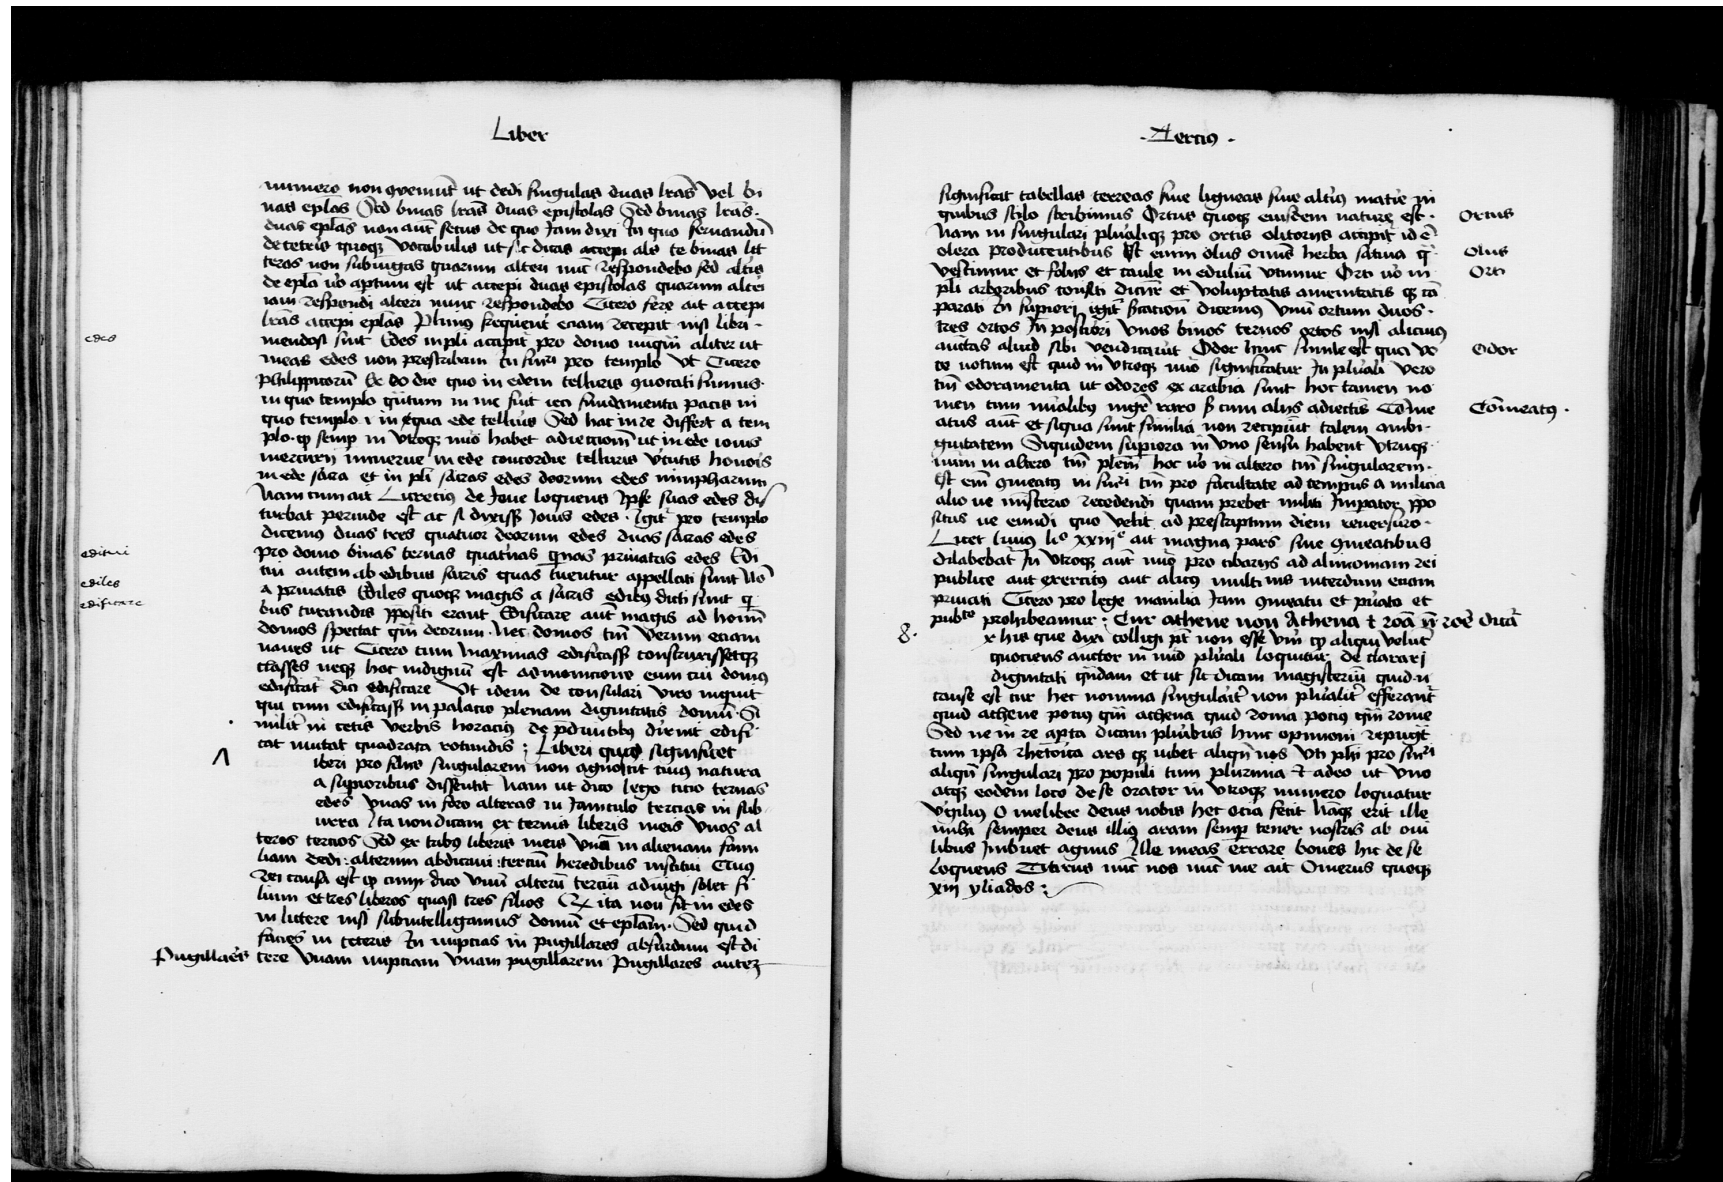 Liber
numero non ꝯveniūt ut dedi singulas duas lrãs vel bi
nas eplãs Sed binas lrãs duas epistolas Sed binas lrãs.
duas eplãs non aūt secus de quo Jam dixi In quo servandū
de ceteris quoqꝫ vocabulis ut sic dicas accepi abs te binas lit
teras non subiūgas quarum alteri nūc respondebo sed alt'is
de eplã ũo aptum est ut accepi duas epistolas quarum alteri
iam respondi alteri nunc respondebo Cicero fere ait accepi
lrãs accepi eplãs Plinius frequent' eciam recepit nisi libri
mendosi sunt Edes in pli accipit' pro domo nuqm̄ aliter ut
edes
meas edes non prescribam In sing'i pro templo Ut Cicero
Philippicorū Ex eo die quo in edem telluris ꝯuocati sumus.
in quo templo q̄ntum in me fuit ieci fundamenta pacis in
quo templo i in qua ede tellur's Sed hac in re differt a tem
plo. ꝙ semp̄ in utroqꝫ nūo habet adiectionē ut in ede iouis
mercurij minerue in ede concordie telluris v'tutis honoris
in ede sacra et in pli sacras edes deorum edes nimpharum
Nam cum ait Lucretius de Joue loquens Ipse suas edes dis
turbat perinde est ac si dixiss; Jouis edes. Igit' pro templo
dicemus duas tres quatuor deorum edes duas sacras edes
pro domo binas ternas quat'nas q̄nas priuatas edes Edi
editui
tui autem ab edibus sacris quas tuentur appellati sunt Nō
ediles
a priuatis Ediles quoqꝫ magis a sacris edibus dicti sunt q'
edificare
bus curandis p̄positi erant Edificare aut' magis ad hoīm
domos spectat qm̄ deorum. Nec domos tm̄ verum eciam
naues ut Cicero cum maximas edificass; construxissetqꝫ
classes neqꝫ hoc indignū est admiracione cum cui domus
edificat' dici edificare Ut idem de consulari viro inquit
qui cum edificass; in palacio plenam dignitatis domū. Si
milit' in ceteris verbis horacius de p̄diuitibus diruit edifi
cat mutat quadrata rotundis ; Liberi quid significet
Λ
iberi pro filiis singularem non agnoscit cuius natura
a superioribus dissentit Nam ut dico lego ticio ternas
edes vnas in foro alteras in Janiculo tercias in sub
urra Ita non dicam ex ternis liberis meis vnos al
teros tercios Sed ex tribus liberis meis vnū in alienam fami
liam dedi : alterum abdicaui : terciū heredibus institui Cuius
rei causa est ꝙ cum dico vnū alterū terciū adiūgi solet fi
lium et tres liberos quasi tres filios Qꝫ ita non fit in edes
in littere nisi subintelligamus domū et eplãm. Sed quid
facies in ceteris In nuptias in pugillares absurdum est di
Pugillares
cere vnam nuptiam vnam pugillarem Pugillares autem
. Tercius .
significat tabellas cereas siue ligneas siue alt'ius mat'ie in
quibus stilo scribimus Ortus quoqꝫ eiusdem nature est.
Ortus
Nam in singulari pluraliqꝫ pro ortis olitoriis accipit' id ē
olera producentibus Est enim olus omīs herba satiua q'
Olus
vescimur et foliis et caule in eduliū utimur Orti ũo in
Orti
pli arboribus consiti dicūtr' et voluptatis amenitatis qꝫ cā
parati In superiori igit' significationē dicemus vnū ortum duos.
tres ortos In posteriori vnos binos ternos ortos nisi alicuius
auctas aliud sibi vendicarūt Odor huic simile est qua vo
Odor
ce notum est quid in utroqꝫ nūo significatur In plurali vero
tm̄ odoramenta ut odores ex arabia sunt hoc tamen no
men cum nūalibus iungit' raro sed cum aliis adiectis Cōme
Cōmeatus .
atus aūt et siqua sunt similia non recipiūt talem ambi
guitatem Siquidem superiora in vno sensu habent utrūqꝫ.
nūm in altero tm̄ plem̄ hoc ũo in altero tm̄ singularem.
Est em̄ ꝯmeatus in sing'i tm̄ pro facultate ad tempus a milicia
alio ue misterio recedendi quam prebet militi Imperator p̄po
situs ue eundi quo velit ad prescriptum diem reuersuro.
Licet liuius lio xxiije ait magna pars sine ꝯmeatibus
dilabebat' In utroqꝫ aūt nūo pro cibariis ad alimoniam rei
publice aut exercitus aut alicuius multi ius interdum eciam
priuati Cicero pro lege manilia Jam ꝯmeatu et priuato et
pubco prohibeamur ; Cur athene non Athena t romā nō rome dicat'
8.
x his que dixi colligi pt' non esse vm̄ ꝙ aliqui velūt
quociens auctor in nūo plurali loquitur declarari
dignitatē q̄ndam et ut sic dicam magisteriū quid n'
cause est cur hec nomina singularit' non pluralit' efferant'
quid athene pocius qm̄ athena quid roma pocius qm̄ rome
Sed ne in re apta dicam pluribus huic opinioni repugt'
cum ipsa rhetorica ars qꝫ iubet aliqn̄ nos uti pli pro sing'i
aliqn̄ singulari pro populi tum plurima t adeo ut vno
atqꝫ eodem loco de se orator in utroqꝫ numero loquatur
Virgilius O melibee deus nobis hec ocia fecit Namqꝫ erit ille
mihi semper deus illius aram semp̄ tener nostris ab oui
libus Imbuet agnus Ille meas errare boues hic de se
loquens Titirus nūc nos nūc me ait Omerus quoqꝫ
xiij yliados ;